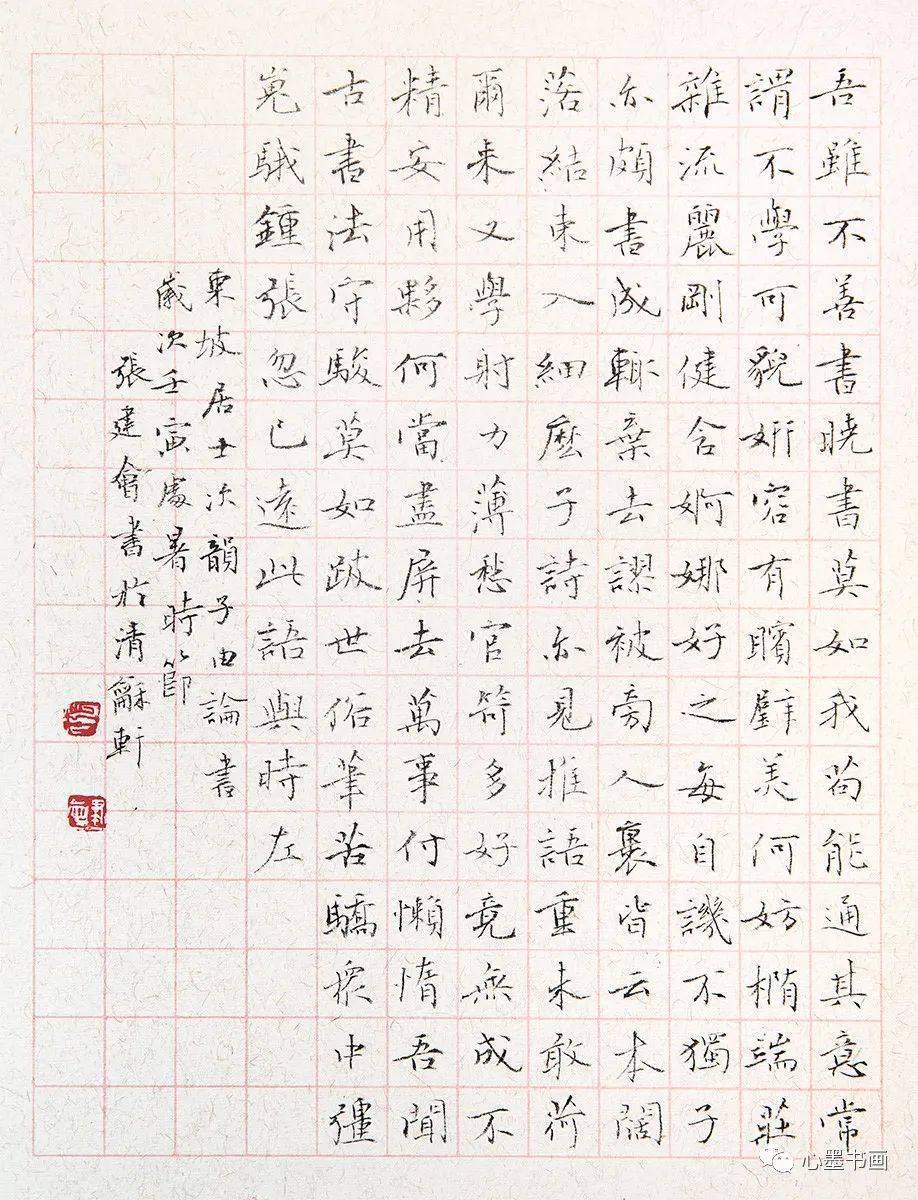 吾雖不善書曉書莫如我苟能通其意常
謂不學可貌妍容有矉璧美何妨橢端莊
雜流麗剛健含婀娜好之每自譏不獨子
亦頗書成輒棄去謬被旁人裹皆云本闊
落結束入細麼子詩亦見推語重未敢荷
爾來又學射力薄愁官笴多好竟無成不
精安用夥何當盡屏去萬事付懶惰吾聞
古書法守駿莫如跛世俗筆苦驕衆中彊
嵬騀鍾張忽已遠此語與時左
東坡居士次韻子由論書
歲次壬寅處暑時節
張建會書於清龢軒
心墨书画